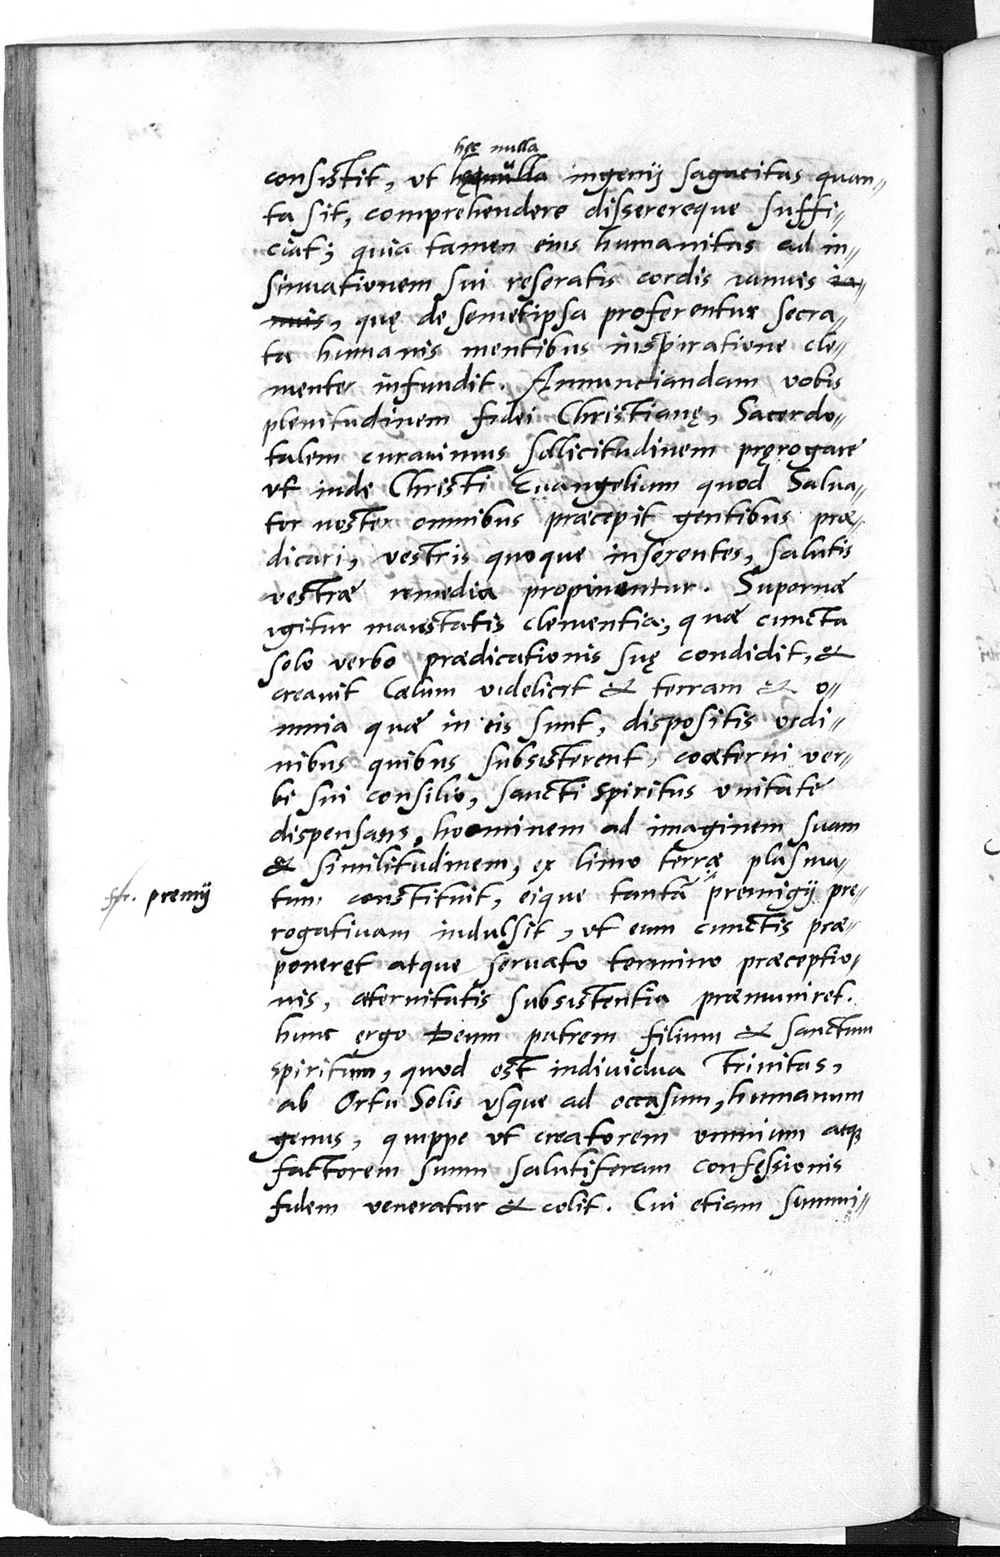 hæ nulla
consistit, ut ingenij sagacitas quan=
ta sit, comprehendere disserereque suffi=
ciat; quia tamen eius humanitas ad in=
sinuationem sui reseratis cordis ianuis ia=
nuis, quę de semetipsa proferentur secra=
ta humanis mentibus inspiratione cle=
menter infundit. Annunciandam vobis
plenitudinem fidei Christianę, Sacerdo=
talem curauimus sollicitudinem pręrogare
vt inde Christi Euangelium quod Salua=
tor noster omnibus præcepit gentibus præ=
dicari, vestris quoque inserentes, salutis
vestræ remedia propinentur. Supernæ
igitur maiestatis clementia, quæ cuncta
solo verbo prædicationis suę condidit, &
creauit Cælum videlicet & terram & o=
mnia quæ in eis sunt, dispositis ordi=
nibus quibus subsisterent, coæterni ver=
bi sui consilio, sancti Spiritus vnitate
dispensans, hominem ad imaginem suam
& similitudinem, ex limo terræ plasma=
tum constituit, eique tantã premigij pre=
fr. premij
rogatiuam indulsit, vt eum cunctis præ=
poneret atque seruato termino præceptio=
nis, æternitatis subsistentia præmuniret.
hunc ergo Deum patrem filium & sanctum
spiritum, quod est indiuidua Trinitas,
ab Ortu Solis vsque ad occasum, humanum
genus, quippe vt creatorem omnium atq3
factorem suum salutiferam confessionis
fidem veneratur & colit. Cui etiam summi=